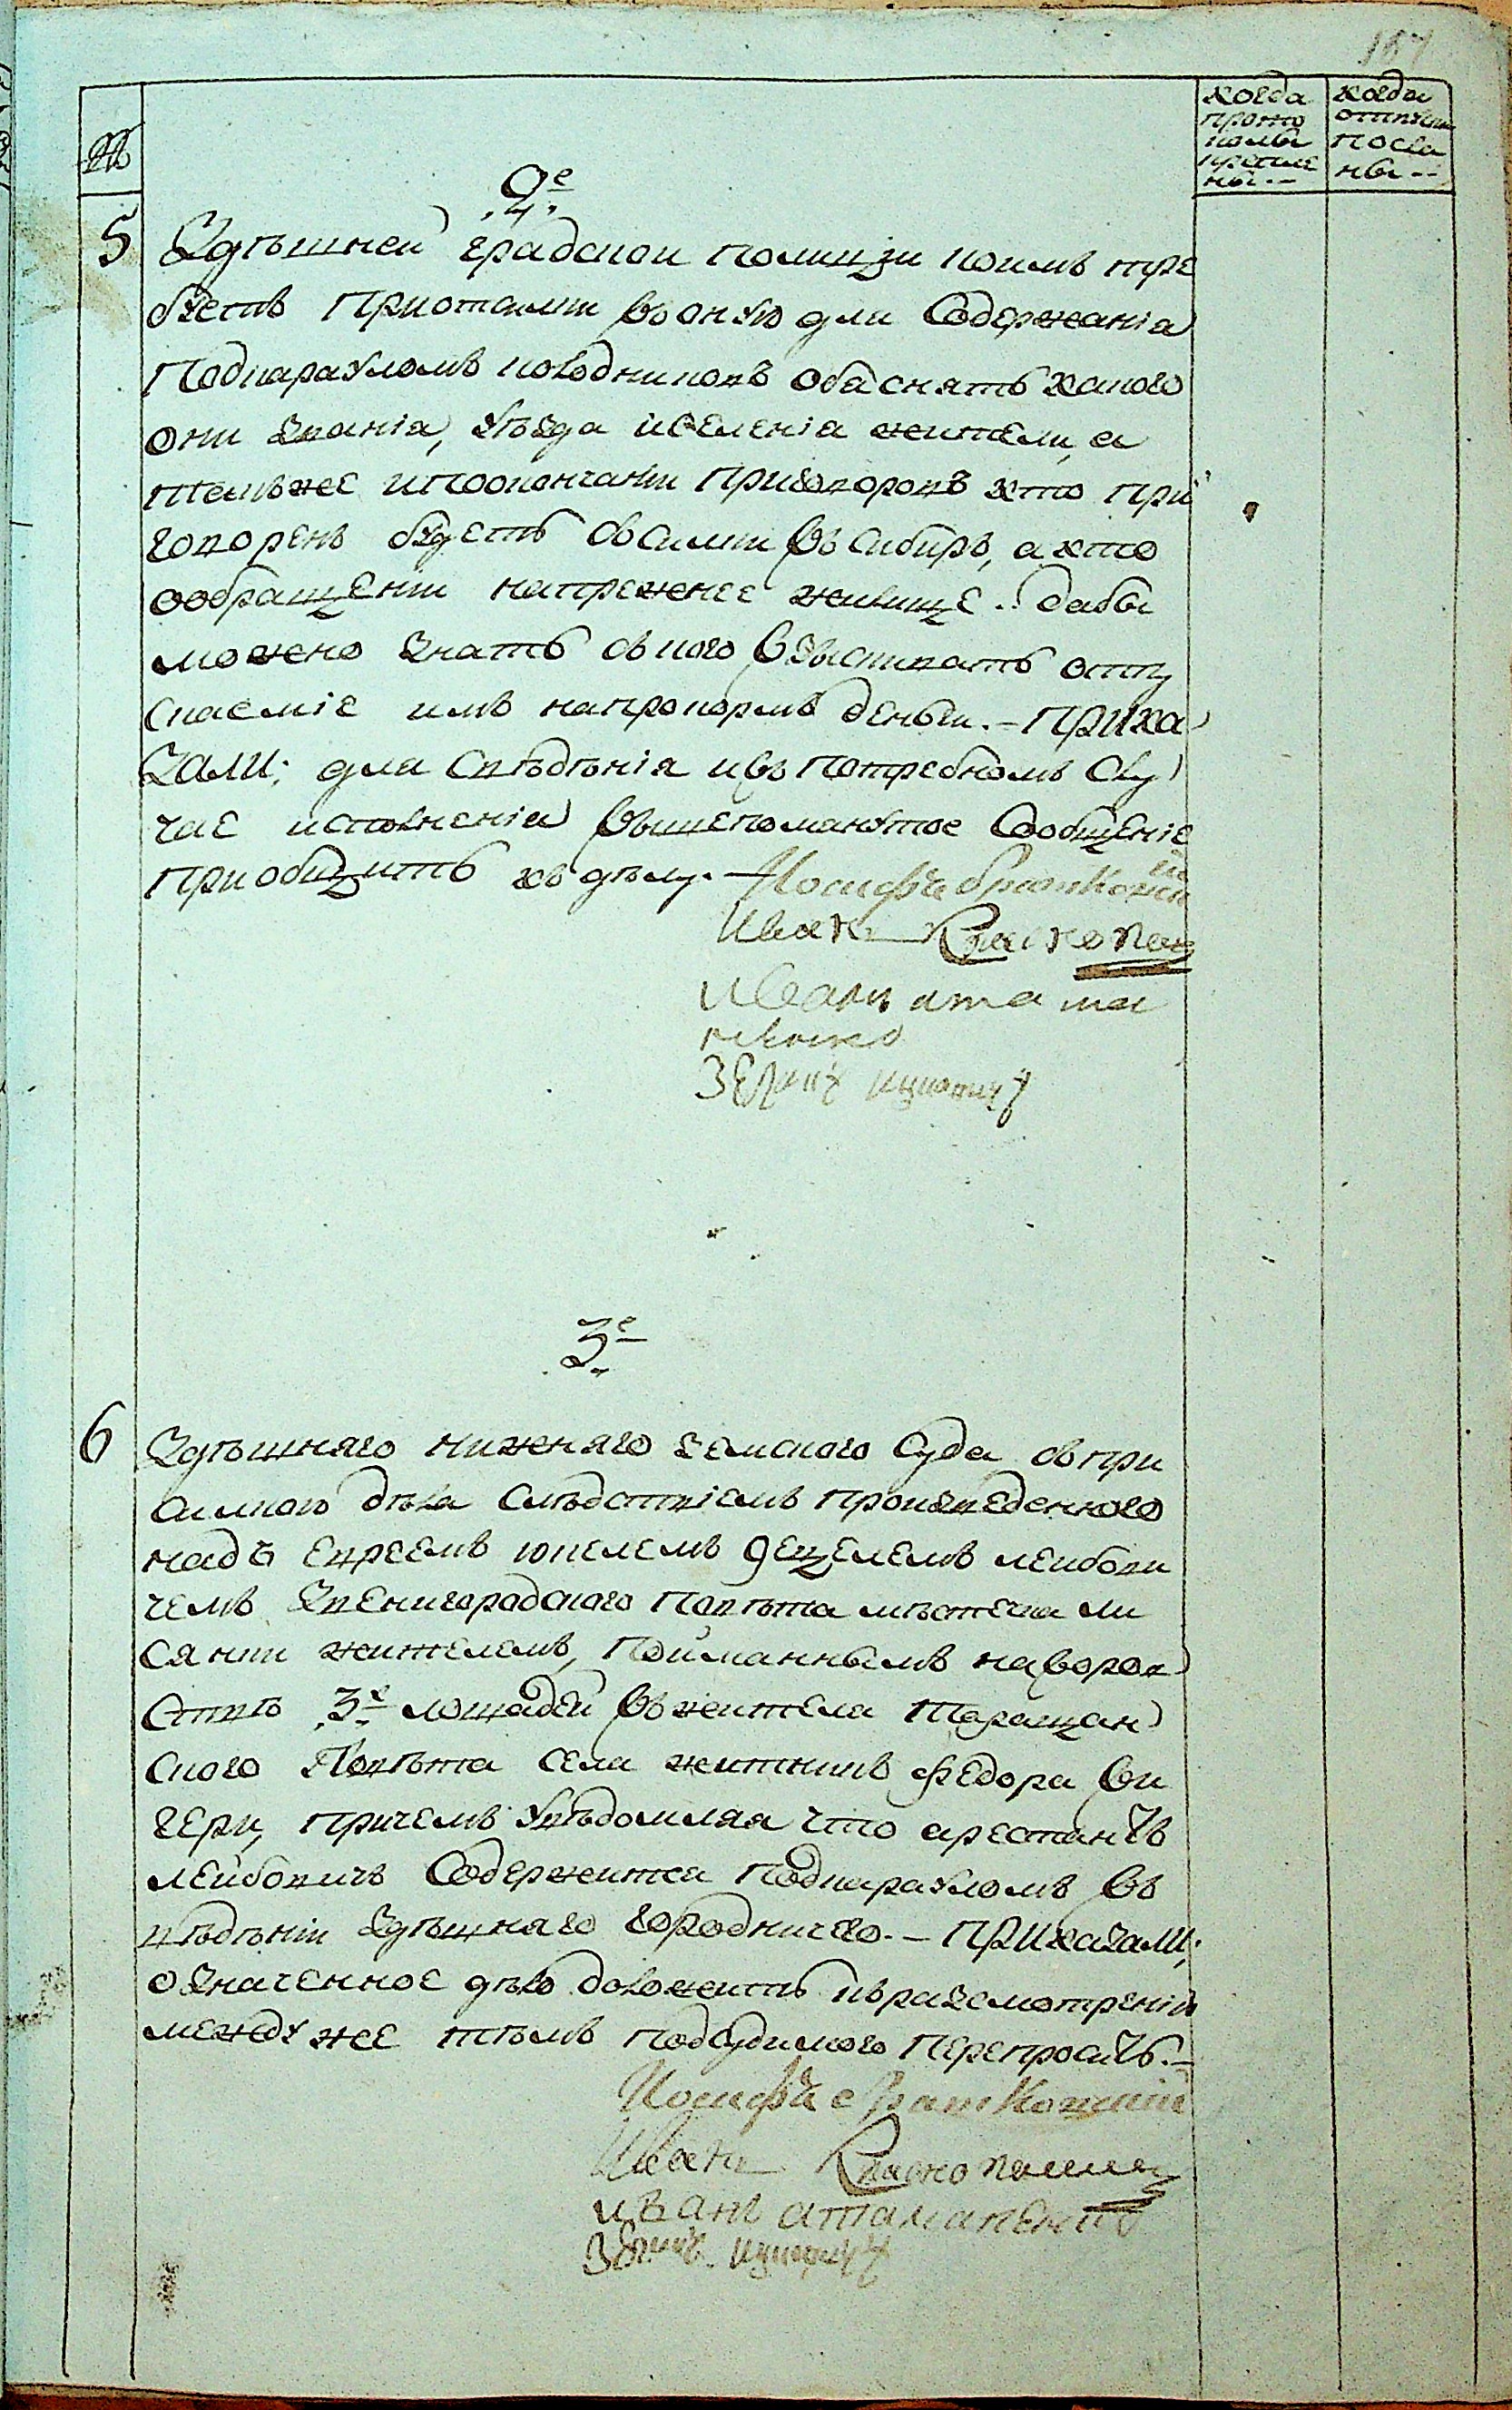 167
№
когда прото колы крепле ны --
когда отпускы посла ны --
2е
5 Здѣшней градской полиции коимъ тре
буетъ присталми во оную для содержанія
подкарауломъ колодниковъ обяснять какого
они званія, уѣзда и селенія жители, а
темъже и по окончании приговоровъ кто при
говоренъ будетъ ссылки въ сибирь, а кто
о обращении на прежнее жилище. дабы
можно знать съ кого взыскивать отпу
скаеміе имъ на прокормъ деньги. - Прика
зали: для свѣдѣнія и въ потребномъ слу
чае исполненія вышепомянутое сообщеніе
приобщить къ дѣлу. -
Иосифъ братковскій
Иванъ
иванъ атама
ненко
3е
6 Здѣшняго нижняго земского суда съ при
силкою дѣла слѣдствіемъ произведенного
надъ евреемъ юкелемъ децелемъ лейбови
чемъ звенигородского повѣта мѣстечка ли
сянки жителемъ, пойманнымъ на воров
ствѣ 3х лошадей въ жителя таращан
ского повѣта села житникъ Федора Ви
гери, причемъ увѣдомляя что арестантъ
лейбовичъ содержится подкарауломъ въ
вѣдѣнии здѣшняго городничего. - Приказали;
означенное дѣло доложить къ разсмотренію
между же тѣмъ подсудимого перепросить. -
Иосифъ братковскій
Иванъ
иванъ атаманенко